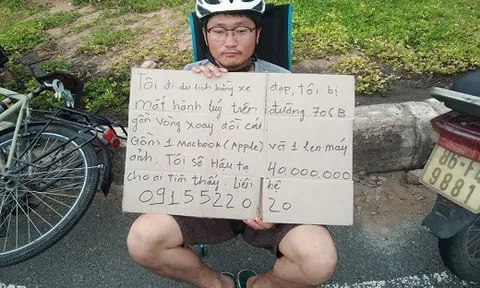 Tôi đi du lich bằng xe đẹp, tôi bị
mất hành lúy trên đường 706B
gần Vòng Xoay đồi cát
Gồm 1 Macbook (Apple) và 1 len máy
ảnh. Tôi sẽ Hâu tạ 40.000.000
cho ai Tìm thấy. Liên hệ
09155220 20
86-F
9881